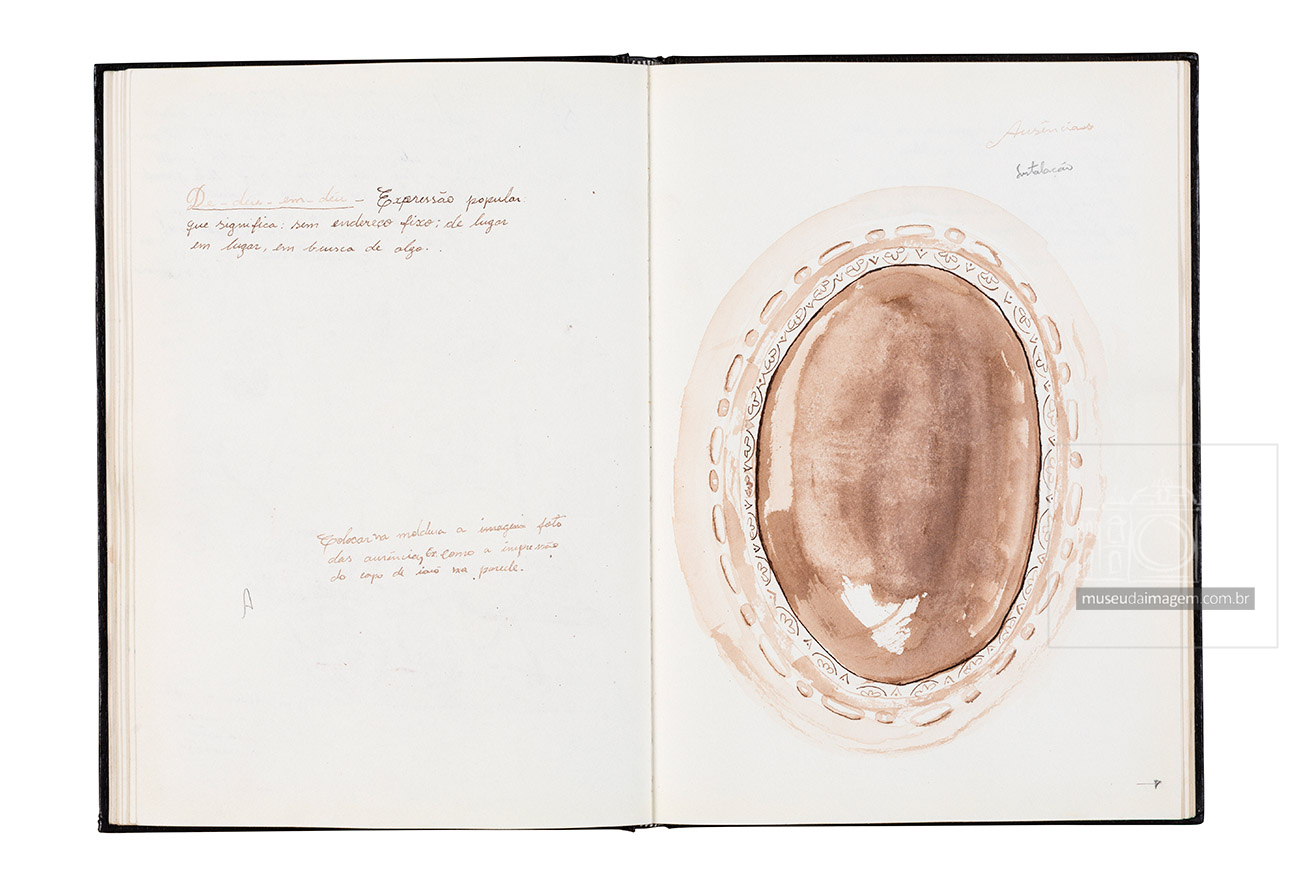 De-déu-em-déu - Expressão popular
que significa: sem endereço fixo; de lugar
em lugar, em busca de algo.
Colocar na moldura a imagem foto
das ausências, como a impressão
do capo de na parede.
A
Ausências
Instalação
museudaimagem.com.br